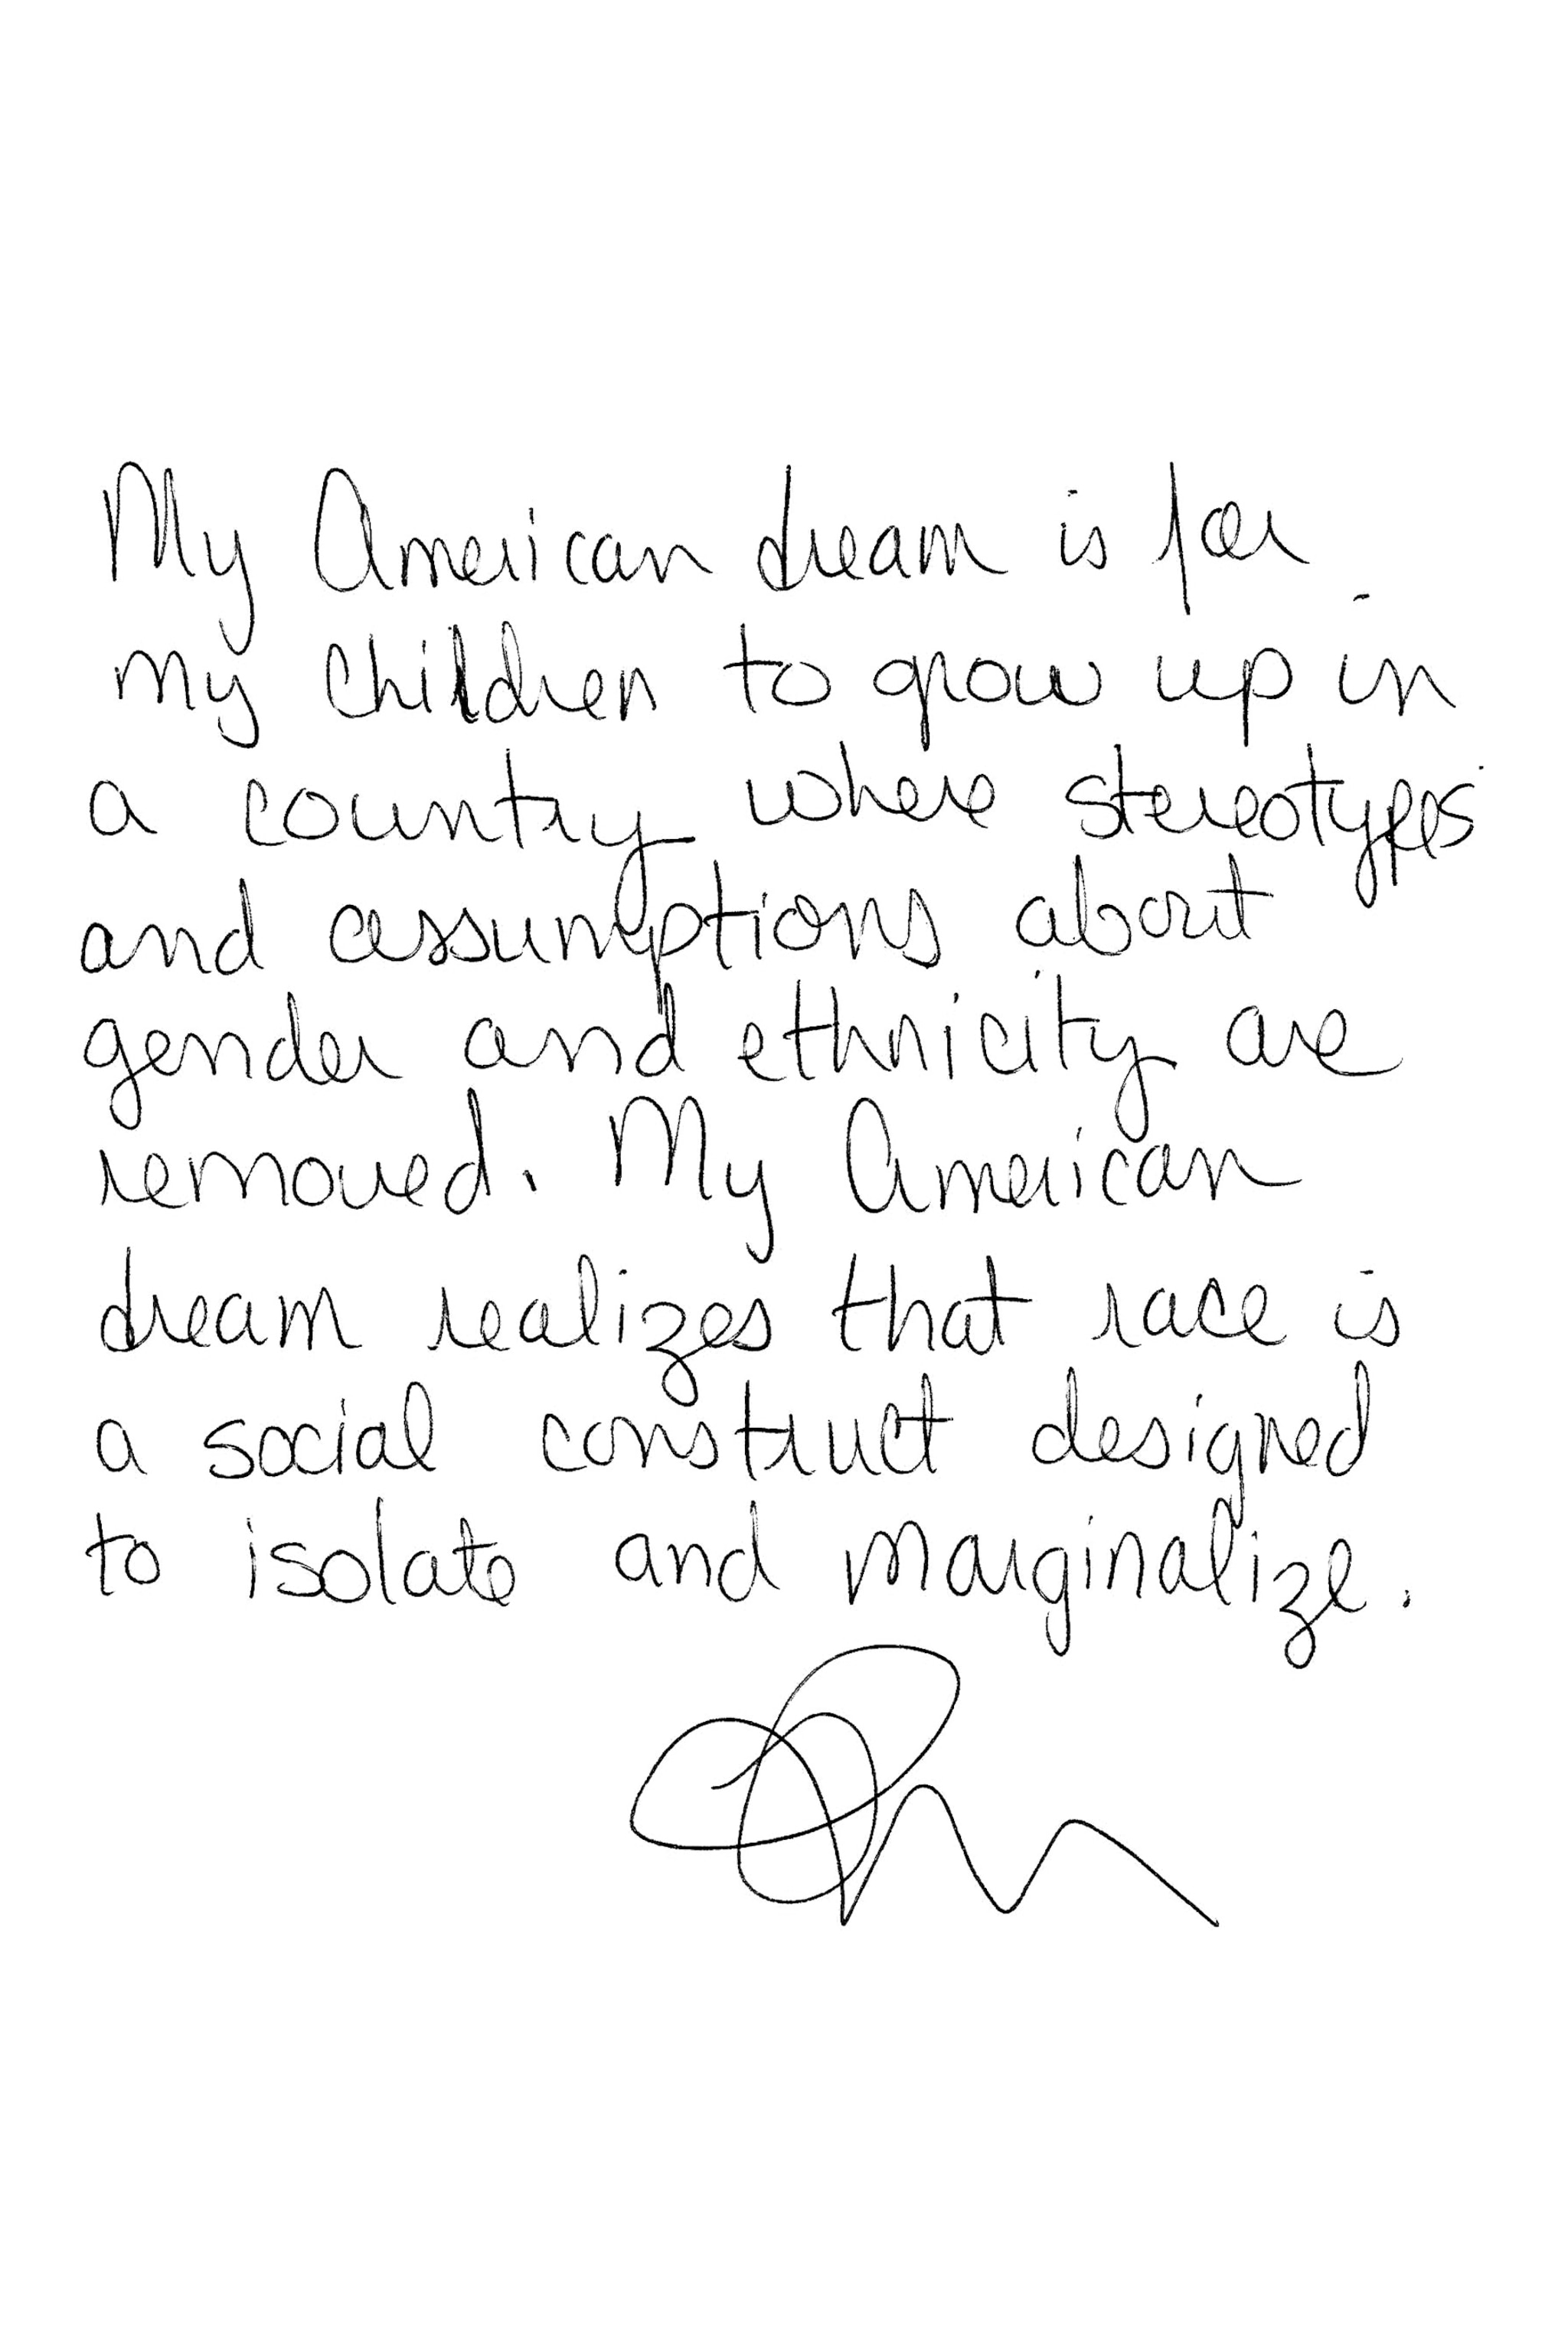 My American dream is for
my children to grow up in
a country where stereotypes
and assumptions about
gender and ethnicity are
removed. My American
dream realizes that race is
a social construct designed
to isolate and marginalize.